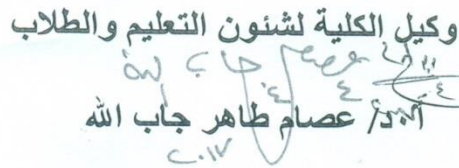 وكيل الكلية لشئون التعليم والطلاب
عصام جاب الله
أ.د/ عصام طاهر جاب الله
٢٠١٢